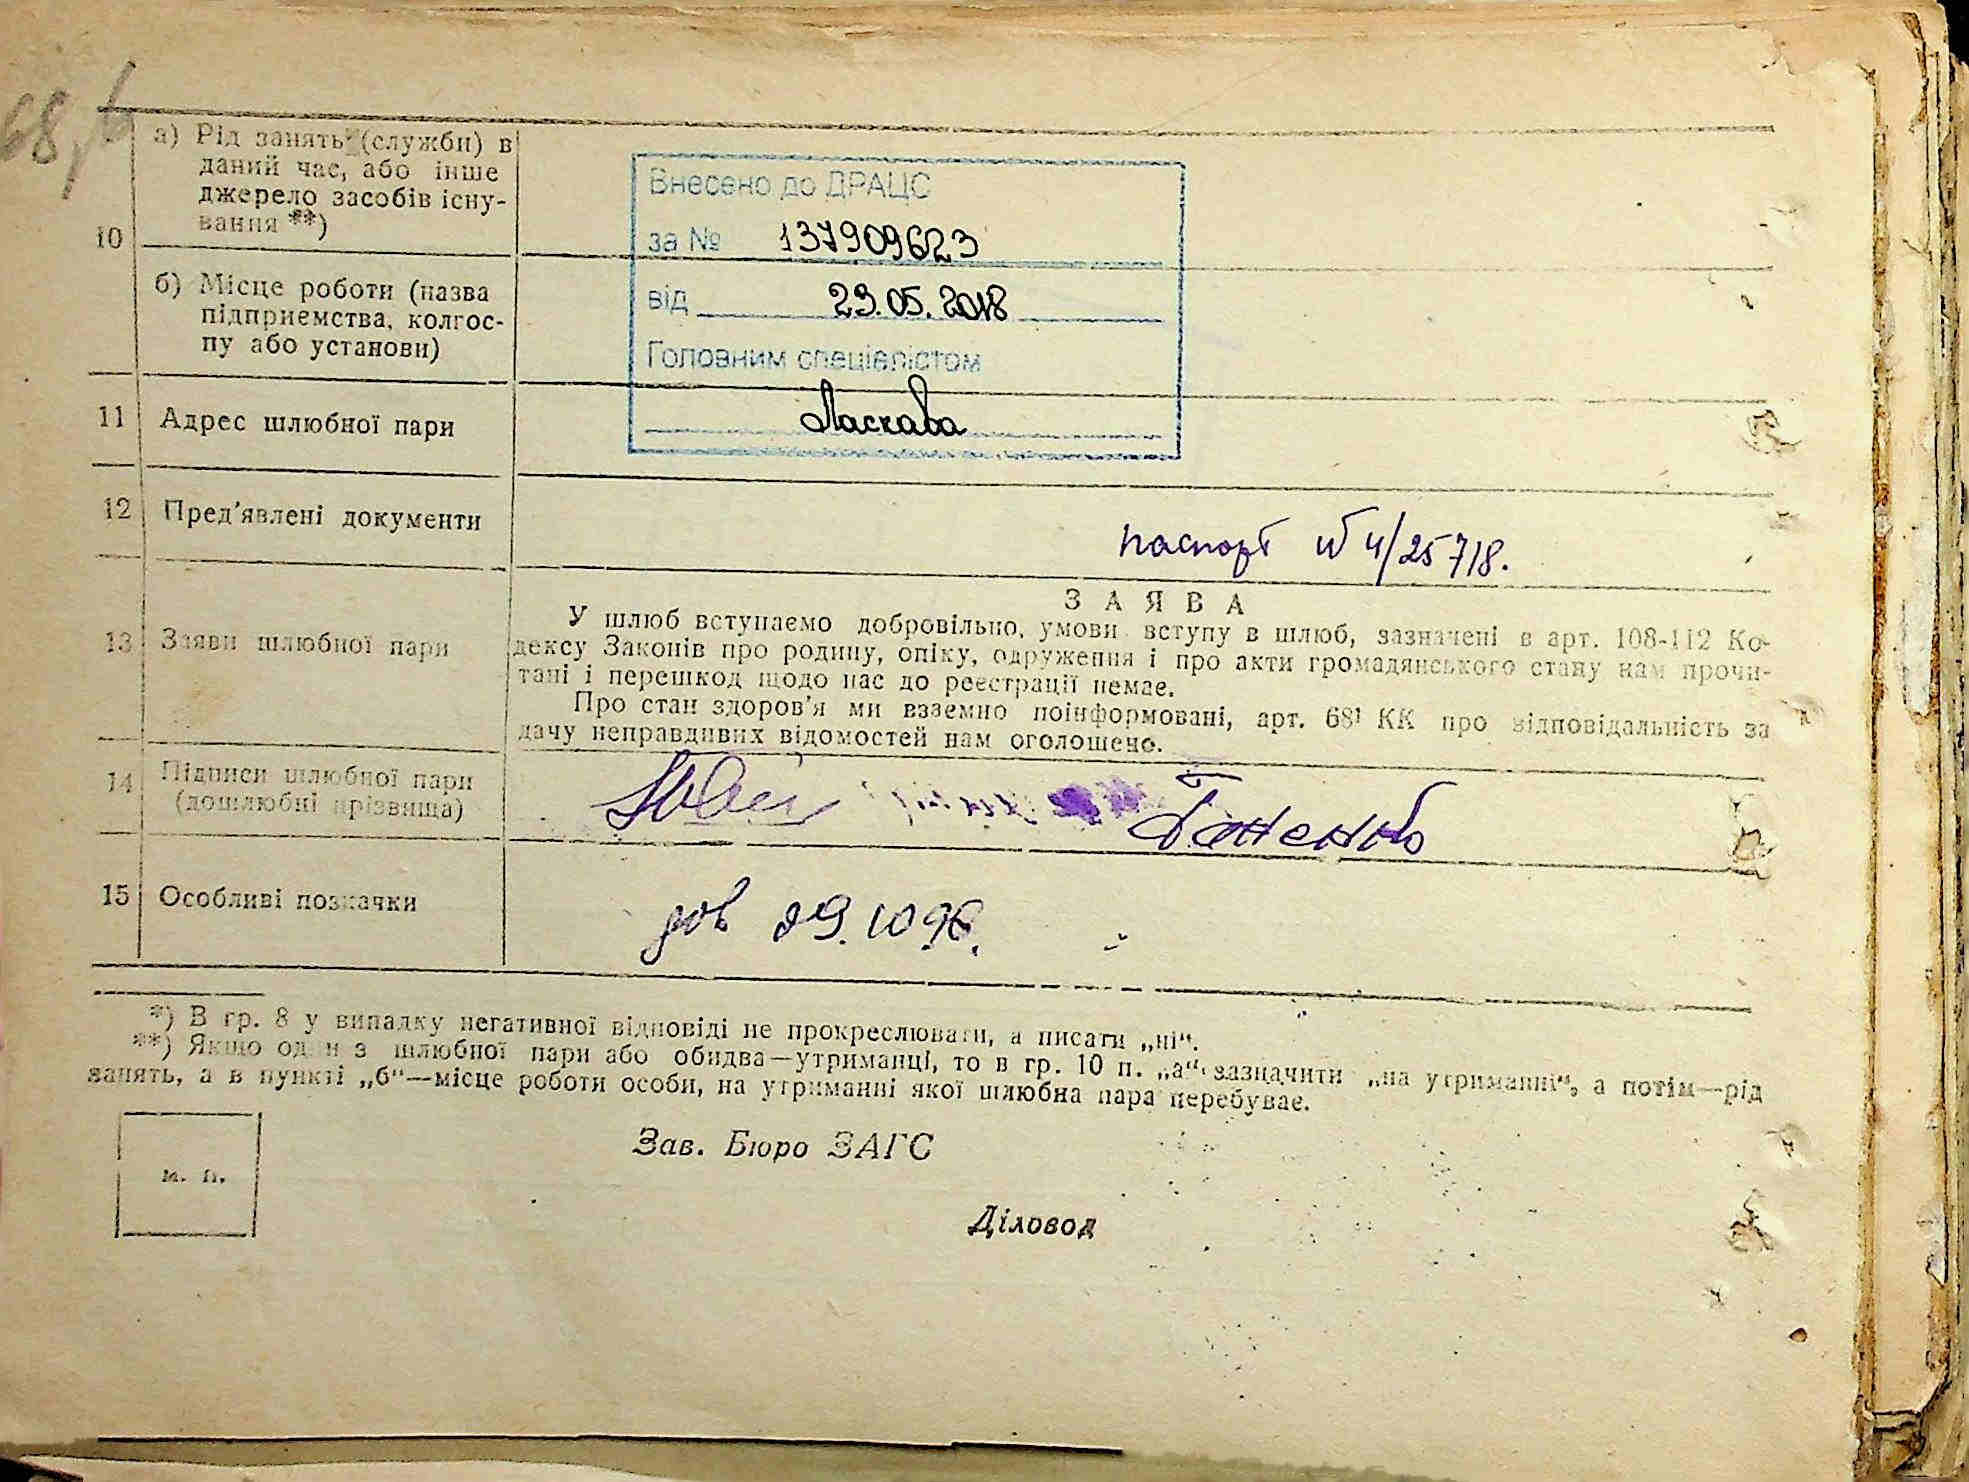 а) Рід занять (служби) в
даний час, або інше
джерело засобів існу-
вання **)
10
б) Місце роботи (назва
підприємства, колгос-
пу або установи)
Внесено до ДРАЦС
за № 137909623
від 29.05.2018
Головним спеціалістом
Ласкава
11 Адрес шлюбної пари
12 Пред'явлені документи
паспорт № 4/25718.
13 Заяви шлюбної пари
ЗАЯВА
У шлюб вступаємо добровільно, умови вступу в шлюб, зазначені в арт. 108-112 Ко-
дексу Законів про родину, опіку, одруження і про акти громадянського стану нам прочи-
тані і перешкод щодо нас до реєстрації немає.
Про стан здоров'я ми взаємно поінформовані, арт. 68¹ КК про відповідальність за
дачу неправдивих відомостей нам оголошено.
14 Підписи шлюбної пари
(дошлюбні прізвища)
15 Особливі позначки
дов 29.10.96.
*) В гр. 8 у випадку негативної відповіді не прокреслювати, а писати „ні“.
**) Якщо один з шлюбної пари або обидва—утриманці, то в гр. 10 п. „а“ зазначити „на утриманні“, а потім—рід
занять, а в пункті „б“—місце роботи особи, на утриманні якої шлюбна пара перебуває.
м. п.
Зав. Бюро ЗАГС
Діловод